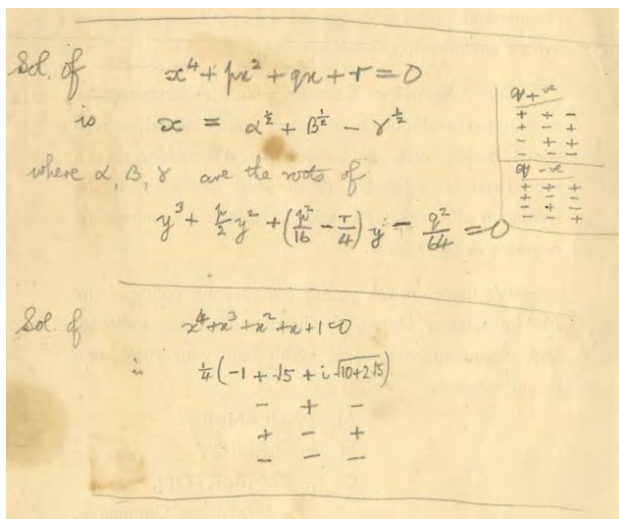 Sol. of x⁴ + px² + qx + r = 0
is x = α^½ + β^½ − γ^½
where α, β, γ are the roots of
y³ + p/2 y² + (p²/16 − r/4) y − q²/64 = 0
q +ve
+ + −
− −
− + +
q −ve
+ + +
+ − −
− + −
− − +
Sol. of x⁴+x³+x²+x+1=0
is ¼(−1 + √5 + i√10+2√5)
− + −
+ − +
− − −